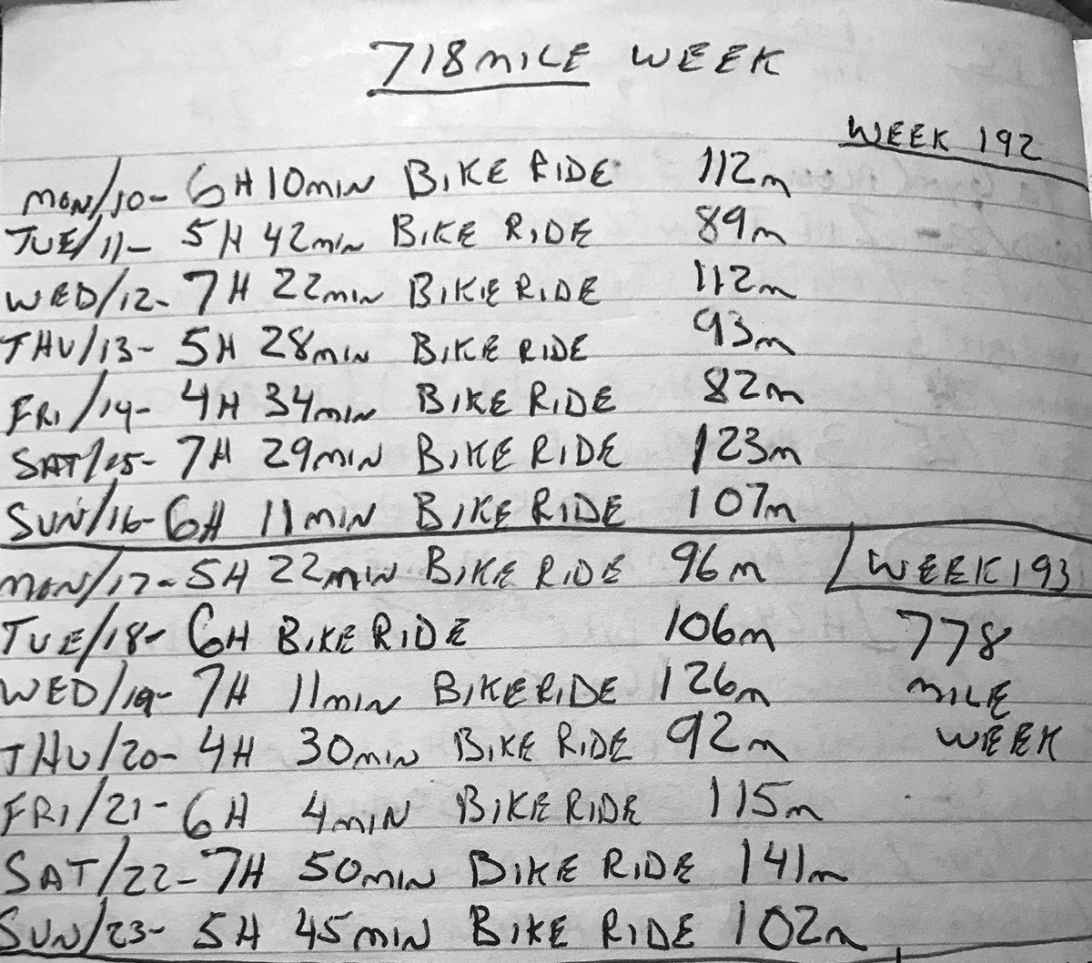 718 MILE WEEK
WEEK 192
MON/10- 6H 10MIN BIKE RIDE 112m
TUE/11- 5H 42min BIKE RIDE 89m
WED/12- 7H 22min BIKE RIDE 112m
THU/13- 5H 28min BIKE RIDE 93m
FRI/14- 4H 34min BIKE RIDE 82m
SAT/15- 7H 29MIN BIKE RIDE 123m
SUN/16- 6H 11MIN BIKE RIDE 107m
MON/17- 5H 22MIN BIKE RIDE 96m WEEK 193
TUE/18- 6H BIKE RIDE 106m 778
WED/19- 7H 11min BIKE RIDE 126m MILE
THU/20- 4H 30MIN BIKE RIDE 92m WEEK
FRI/21- 6H 4MIN BIKE RIDE 115m
SAT/22- 7H 50MIN BIKE RIDE 141m
SUN/23- 5H 45MIN BIKE RIDE 102m